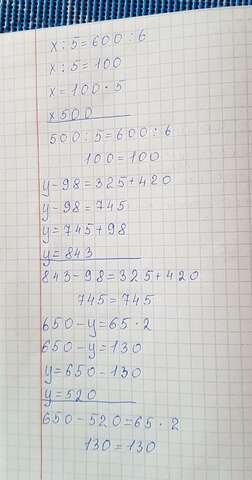 x : 5 = 600 : 6
x : 5 = 100
x = 100 · 5
x 500
500 : 5 = 600 : 6
100 = 100
y - 98 = 325 + 420
y - 98 = 745
y = 745 + 98
y = 843
843 - 98 = 325 + 420
745 = 745
650 - y = 65 · 2
650 - y = 130
y = 650 - 130
y = 520
650 - 520 = 65 · 2
130 = 130